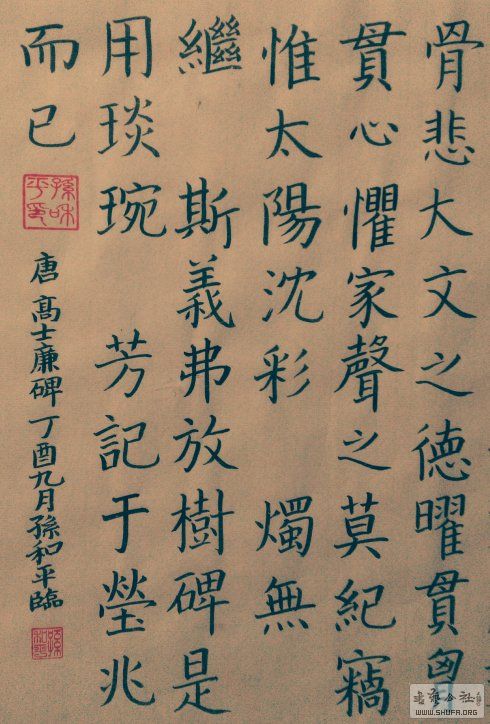 骨悲大文之德曜貫
貫心懼家聲之莫紀竊
惟太陽沈彩 燭無
繼 斯義弗放樹碑是
用琰琬 芳記于塋兆
而已
孫和平印
唐高士廉碑丁酉九月孫和平臨
書藝公社
WWW.SHUFA.ORG